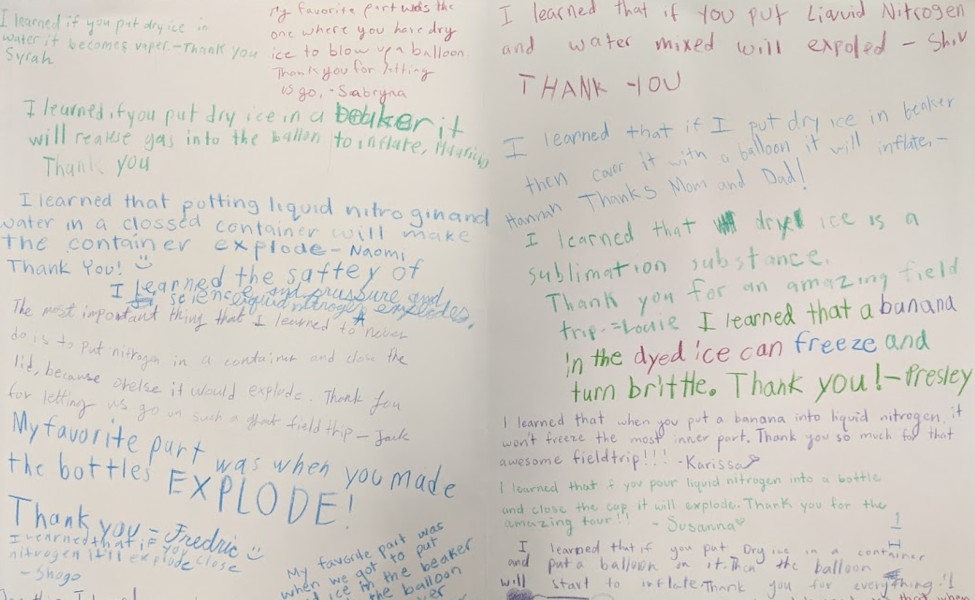 I learned if you put dry ice in
water it becomes vaper. - Thank you
Syrah
My favorite part was the
one where you have dry
ice to blow up a balloon.
Thank you for letting
us go, - Sabryna
I learned, if you put dry ice in a beaker it
will realse gas into the ballon to inflate,
Thank you
I learned that putting liquid nitrogin and
water in a clossed container will make
the container explode - Naomi
Thank You!
I learned the saftey of
science and pressure and
liquid nitrogen explodes.
The most important thing that I learned to never
do is to put nitrogen in a container and close the
lid, because orelse it would explode. Thank you
for letting us go on such a great field trip - Jack
My favorite part was when you made
the bottles EXPLODE!
Thank you = Fredric
I learned that if you close
nitrogen it'll explode
- Shogo
My favorite part was
when we got to put
ice in the beaker
the balloon
I learned that if you put Liquid Nitrogen
and water mixed will expoled - Shiv
THANK YOU
I learned that if I put dry ice in beaker
then cover it with a balloon it will inflate, -
Hannah Thanks Mom and Dad!
I learned that dry ice is a
sublimation substance.
Thank you for an amazing field
trip. = Louie
I learned that a banana
in the dyed ice can freeze and
turn brittle. Thank you! - Presley
I learned that when you put a banana into liquid nitrogen, it
won't freeze the most inner part. Thank you so much for that
awesome fieldtrip!!! - Karissa
I learned that if you pour liquid nitrogen into a bottle
and close the cap it will explode. Thank you for the
amazing tour!! - Susanna
I learned that if you put Dry ice in a container
and put a balloon on it. Then the balloon
will start to inflate Thank you for everything!!